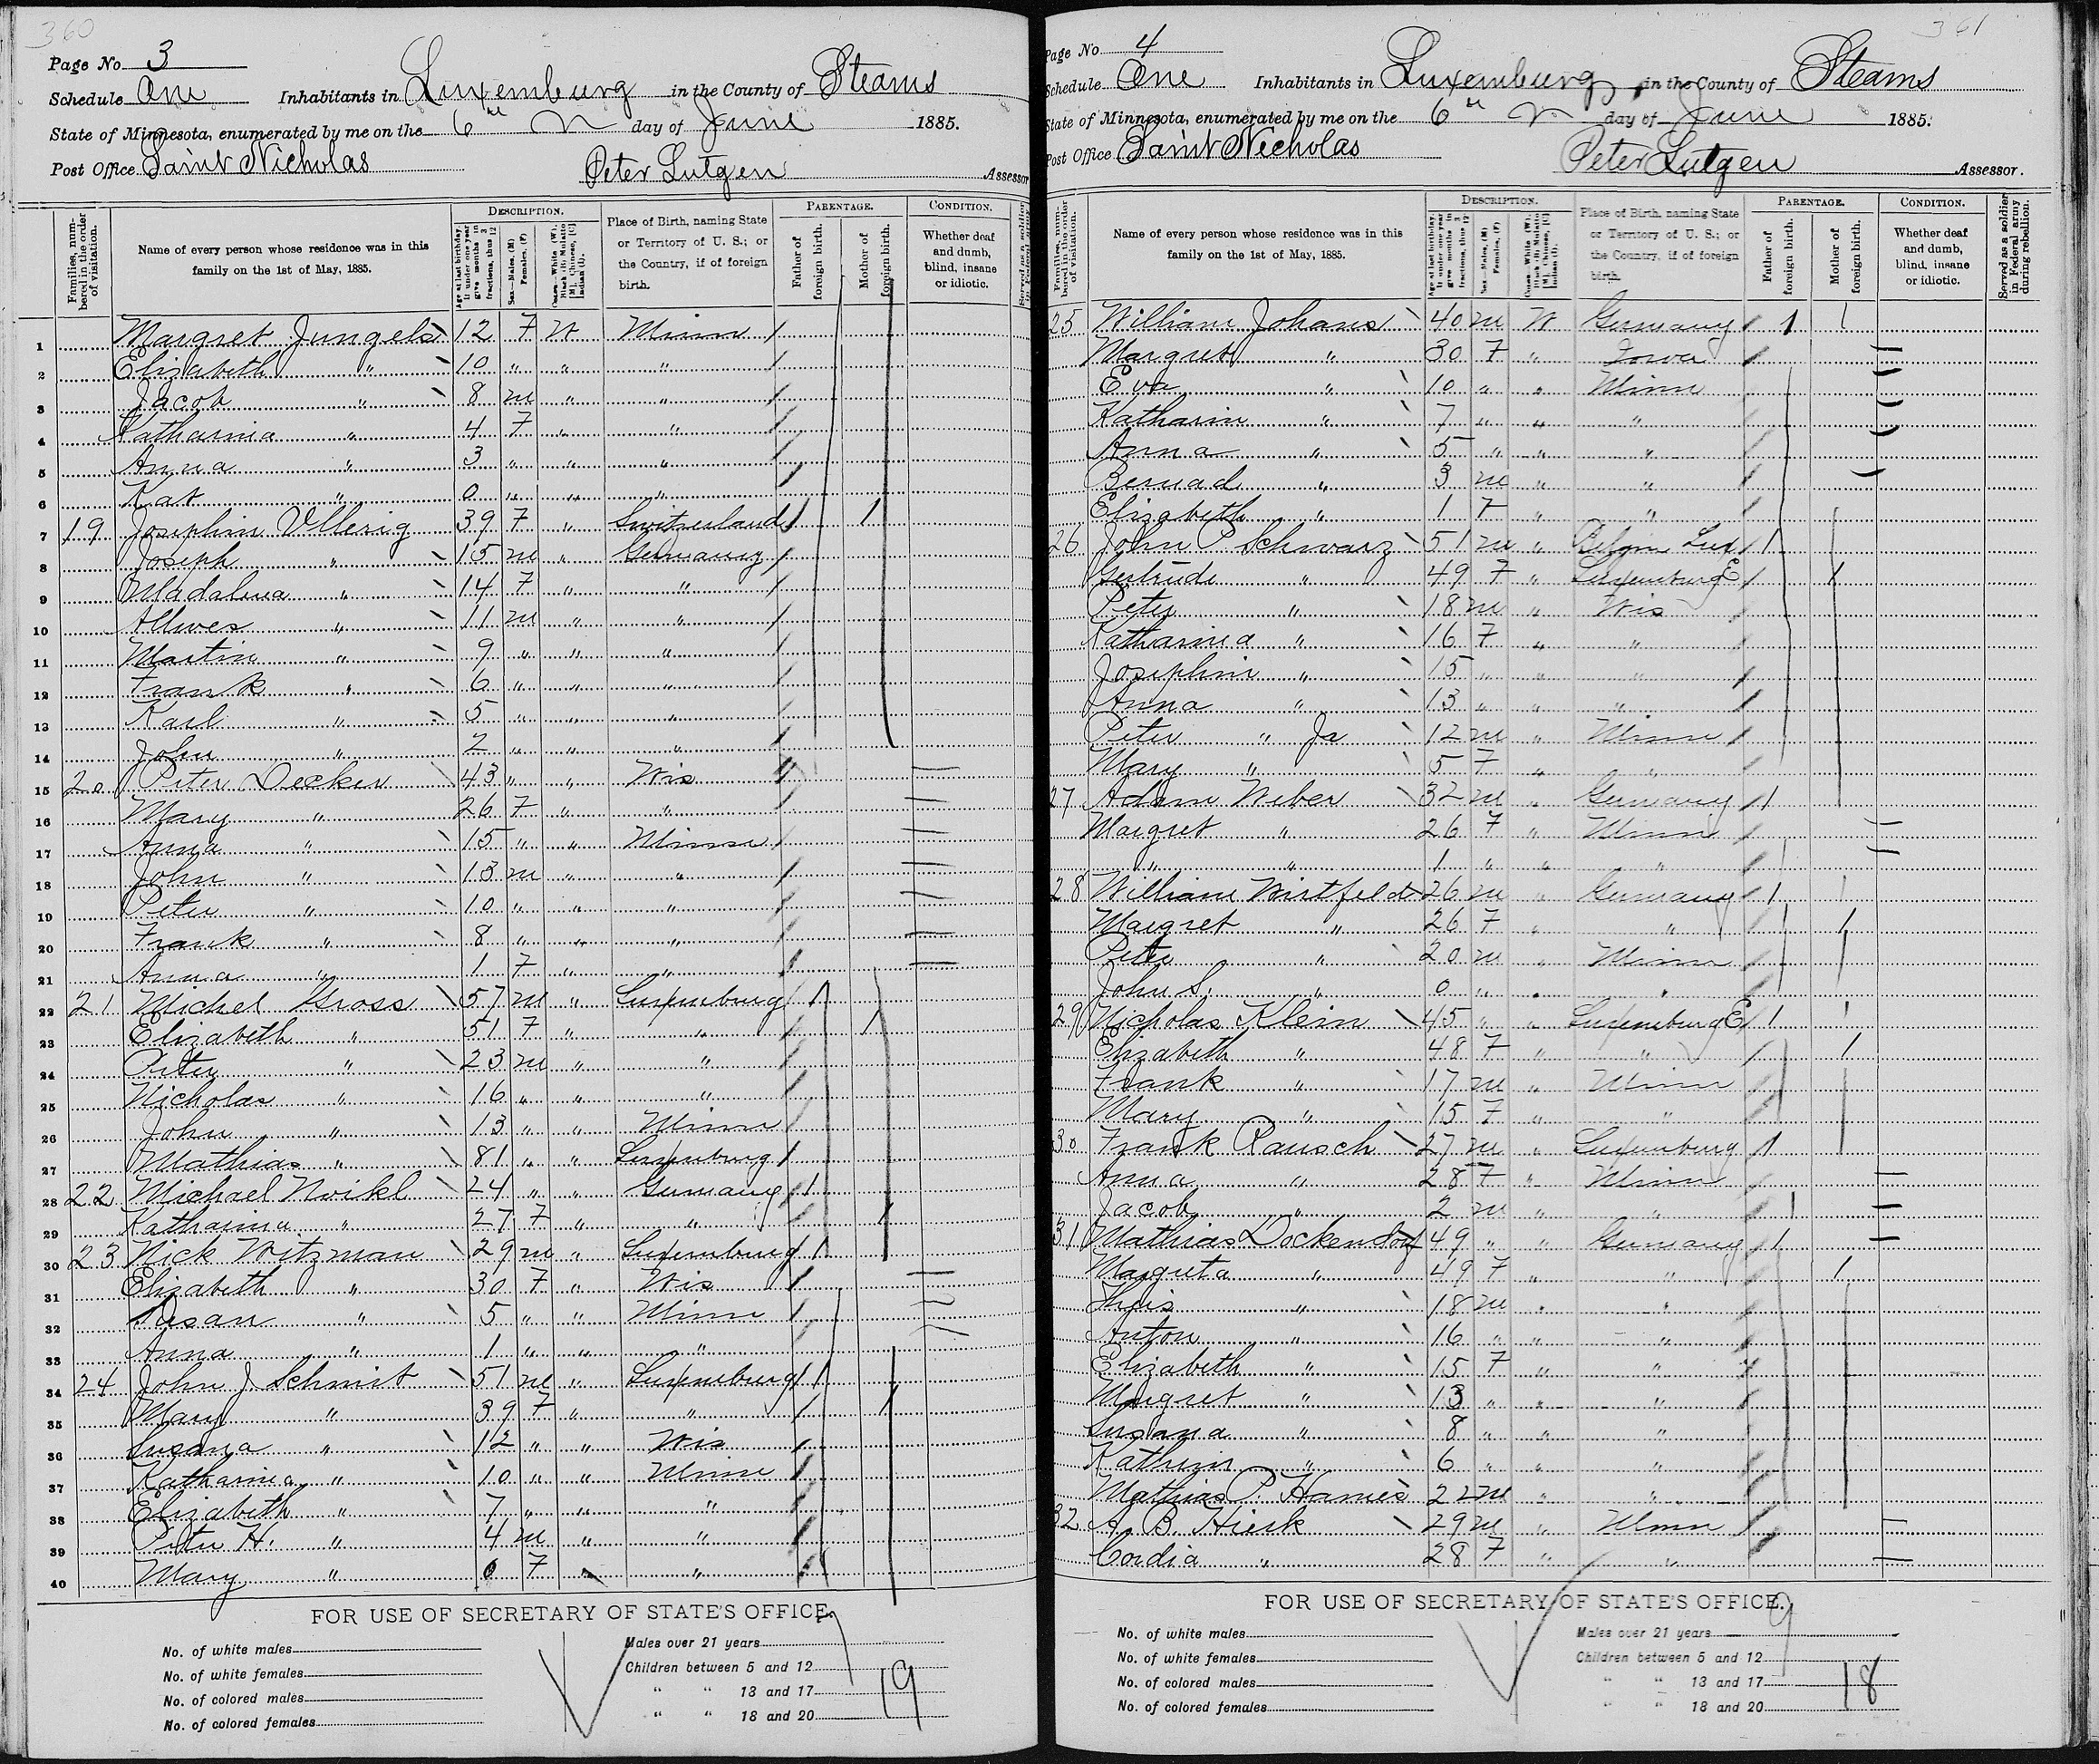 360
Page No 3
Schedule One Inhabitants in Luxemburg in the County of Stearns
State of Minnesota, enumerated by me on the 6th day of June 1885.
Post Office Saint Nicholas Peter Lutgen Assessor
Families, numbered in the order of visitation.
Name of every person whose residence was in this family on the 1st of May, 1885.
DESCRIPTION.
Age at last birthday. If under one year give months in fractions, thus 3/12
Sex—Males, (M) Females, (F)
Place of Birth, naming State or Territory of U. S.; or the Country, if of foreign birth.
PARENTAGE.
Father of foreign birth.
Mother of foreign birth.
CONDITION.
Whether deaf and dumb, blind, insane or idiotic.
1 Margret Jungels 12 F W Minn
2 Elizabeth " 10 " " "
3 Jacob " 8 m " "
4 Katharina " 4 F " "
5 Anna " 3 " " "
6 Kat " 0 " " "
7 19 Josephin Ullerig 39 F " Switzerland 1 1
8 Joseph " 15 m " Germany
9 Madalena " 14 F " "
10 11 m " "
11 Martin " 9 " " "
12 Frank " 6 " " "
13 Karl " 5 " " "
14 John " 2 " " "
15 20 Peter Decker 43 " " Wis
16 Mary " 26 F " "
17 Anna " 15 " " Minn
18 John " 13 m " "
19 Peter " 10 " " "
20 Frank " 8 " " "
21 Anna " 1 F " "
22 21 Michel Gross 57 m " Luxemburg 1
23 Elizabeth " 51 F " " 1
24 Peter " 23 m " "
25 Nicholas " 16 " " "
26 John " 13 " " Minn
27 Mathias " 81 " " Luxemburg
28 22 Michael 24 " " Germany 1
29 Katharina " 27 F " " 1
30 23 Nick Witzman 29 m " Luxemburg 1
31 Elizabeth " 30 F " Wis
32 Susan " 5 " " Minn
33 Anna " 1 " " "
34 24 John J Schmit 51 m " Luxemburg 1
35 Mary " 39 F " " 1
36 Susana " 12 " " Wis
37 Katharina " 10 " " Minn
38 Elizabeth " 7 " " "
39 Peter H. " 4 m " "
40 Mary " 0 F " "
FOR USE OF SECRETARY OF STATE'S OFFICE.
No. of white males
No. of white females
No. of colored males
No. of colored females
Males over 21 years
Children between 5 and 12
" " 13 and 17
" " 18 and 20
7
19
361
Page No 4
Schedule One Inhabitants in Luxemburg in the County of Stearns
State of Minnesota, enumerated by me on the 6th day of June 1885.
Post Office Saint Nicholas Peter Lutgen Assessor.
Families, numbered in the order of visitation.
Name of every person whose residence was in this family on the 1st of May, 1885.
DESCRIPTION.
Age at last birthday. If under one year give months in fractions, thus 3/12
Sex—Males, (M) Females, (F)
Place of Birth, naming State or Territory of U. S.; or the Country, if of foreign birth.
PARENTAGE.
Father of foreign birth.
Mother of foreign birth.
CONDITION.
Whether deaf and dumb, blind, insane or idiotic.
Served as a soldier in Federal army during rebellion.
25 William Johans 40 m W Germany 1 1
Margret " 30 F " Iowa
Eva " 10 " " Minn
Katharin " 7 " " "
Anna " 5 " " "
Bernad " 3 m " "
Elizabeth " 1 F " "
26 John P Schwarz 51 m " Belgin Lux 1
Gertrude " 49 F " Luxemburg E 1
Peter " 18 m " Wis
Katharina " 16 F " "
Josephin " 15 " " "
Anna " 13 " " "
Peter " Jr 12 m " Minn
Mary " 5 F " "
27 Adam Weber 32 m " Germany 1
Margret " 26 F " Minn
" " 1 " " "
28 William Wirtfeld 26 m " Germany 1 1
Margret " 26 F " " 1
Peter " 20 m " Minn
John S. " 0 " " "
29 Nicholas Klein 45 " " Luxemburg E 1 1
Elizabeth " 48 F " " 1
Frank " 17 m " Minn
Mary " 15 F " "
30 Frank Rausch 27 m " Luxemburg 1
Anna " 28 F " Minn
Jacob " 2 m " "
31 Mathias Dockendorf 49 " " Germany 1
Margreta " 49 F " " 1
" 18 m " "
Anton " 16 " " "
Elizabeth " 15 F " "
Margret " 13 " " "
Susana " 8 " " "
Kathrin " 6 " " "
Mathias P. Hames 22 m " "
32 A. B. Hierk 29 m " Minn
Cordia " 28 F " "
FOR USE OF SECRETARY OF STATE'S OFFICE.
No. of white males
No. of white females
No. of colored males
No. of colored females
Males over 21 years
Children between 5 and 12
" " 13 and 17
" " 18 and 20
9
18